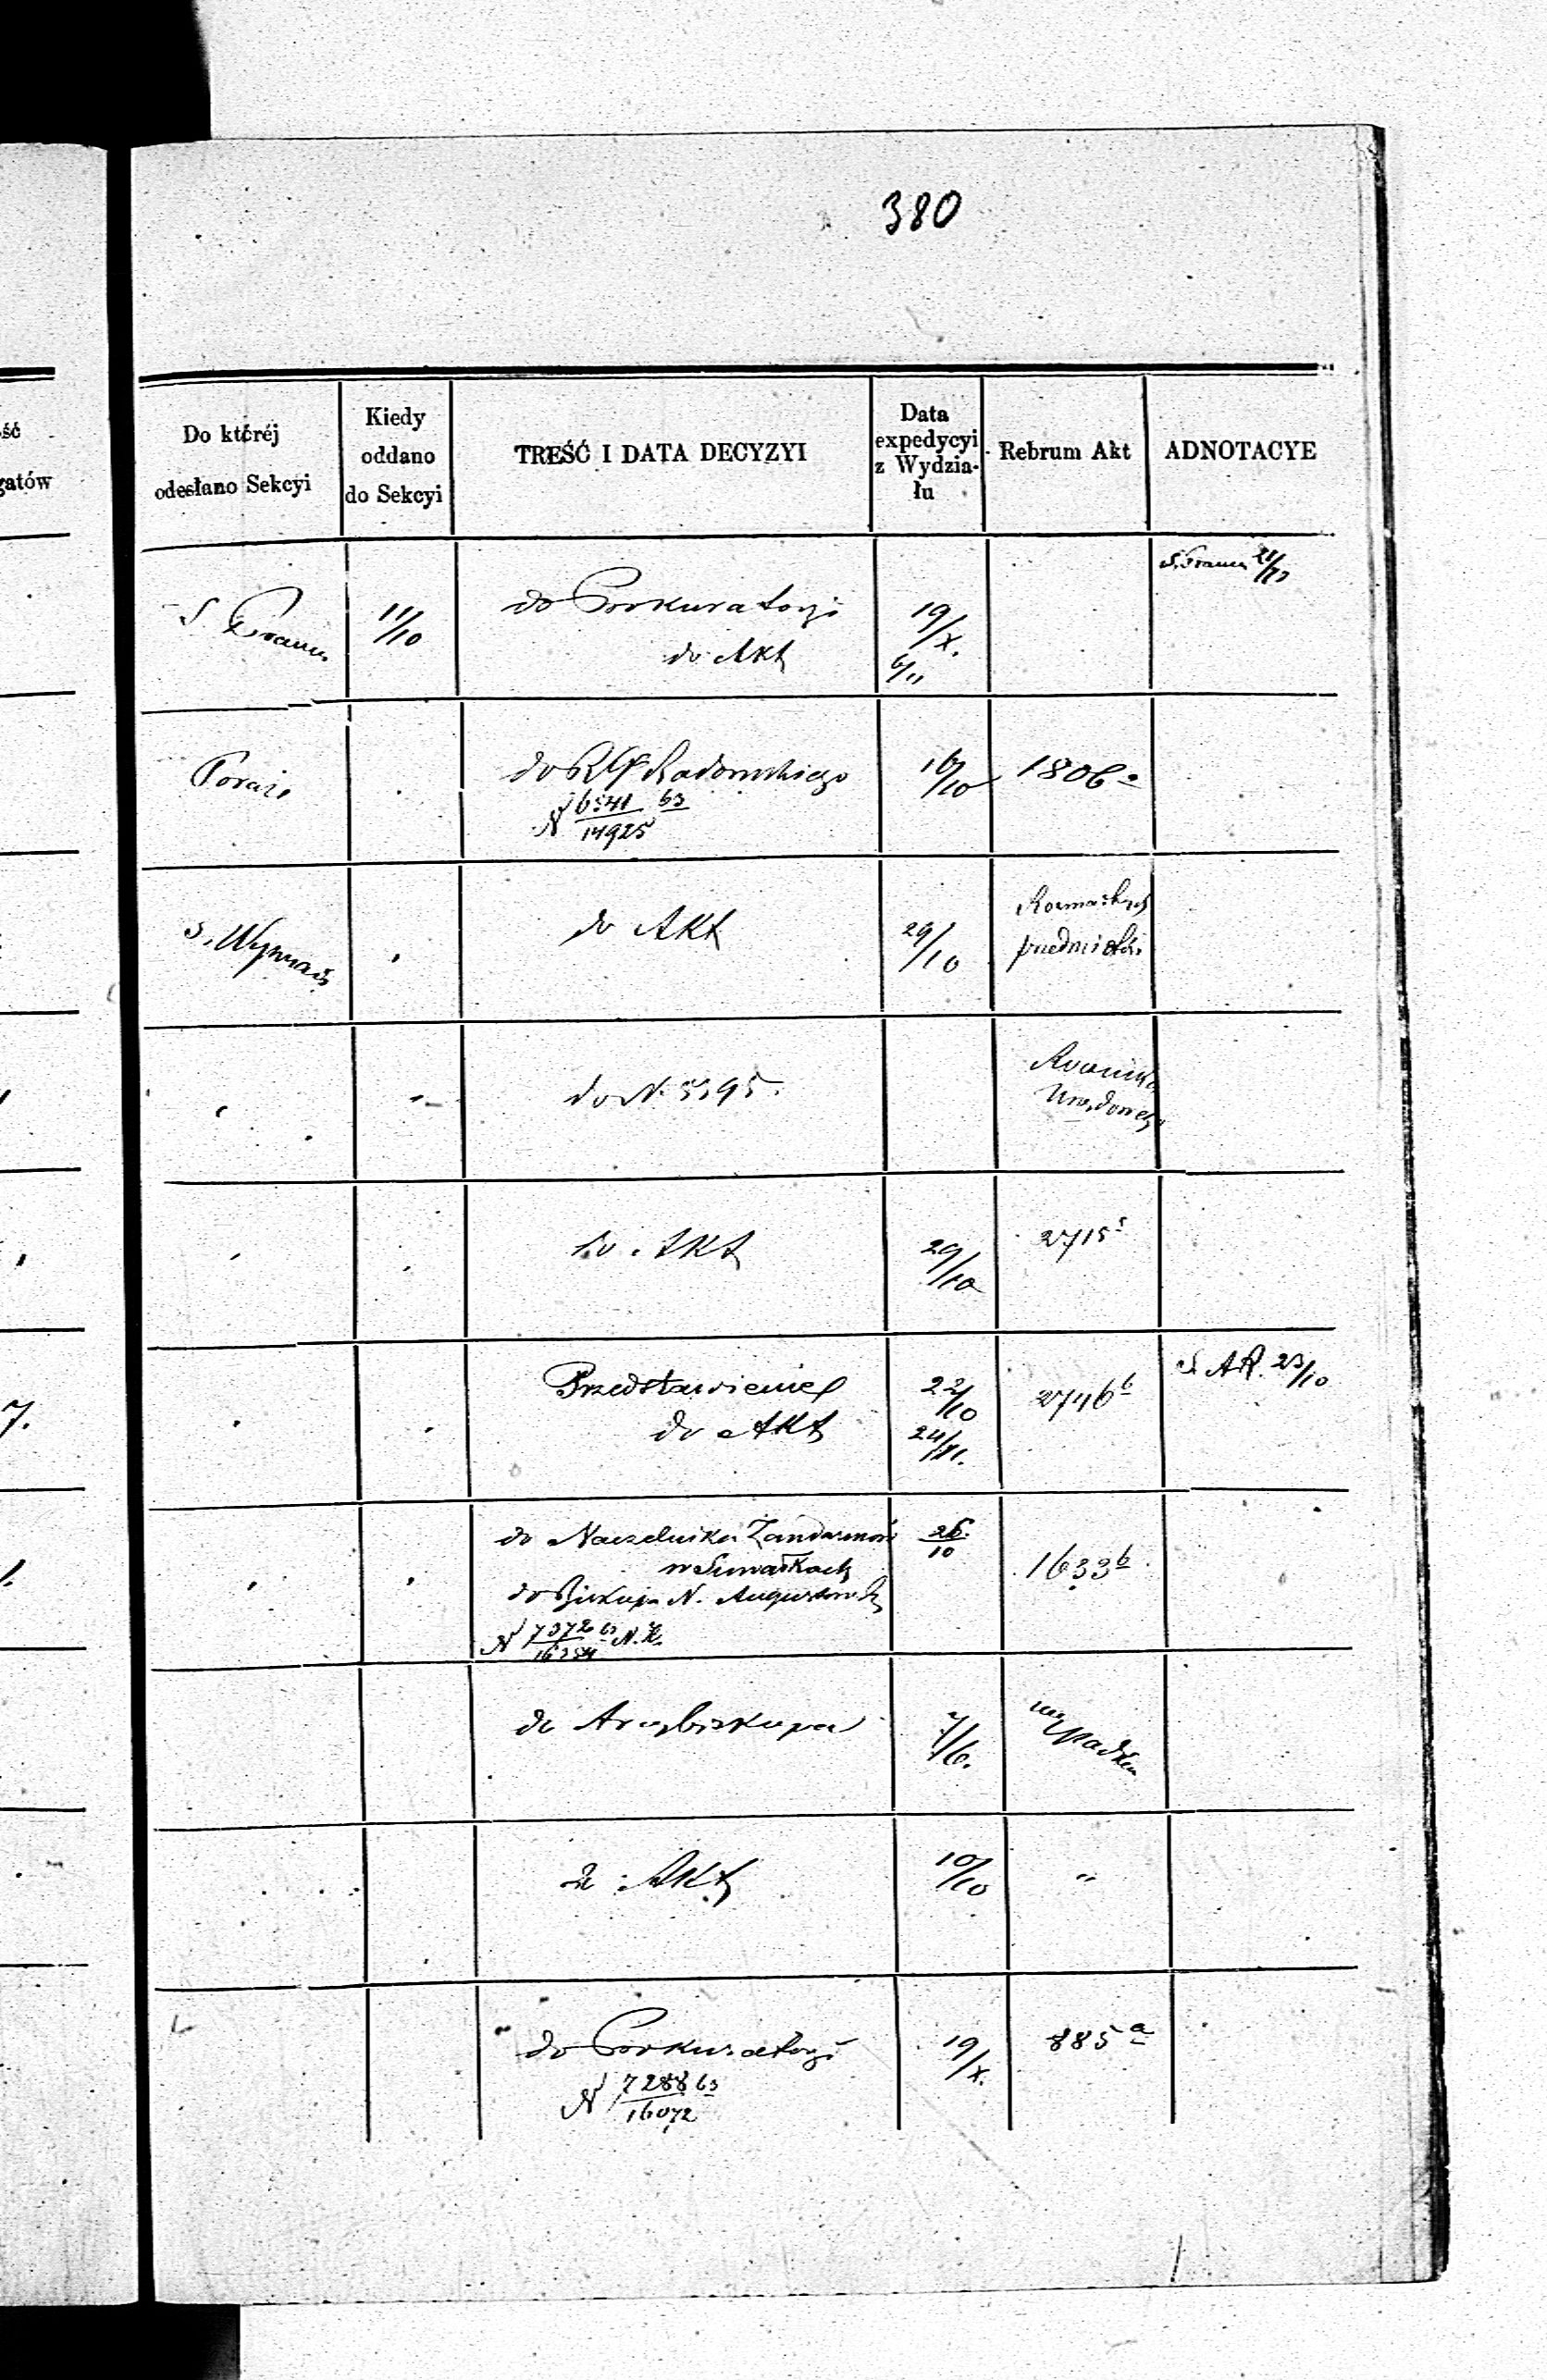 380
ść
gatów
Do któréj
odesłano Sekcyi
Kiedy
oddano
do Sekcyi
TREŚĆ I DATA DECYZYI
Data
expedycyi
z Wydzia-
łu
Rebrum Akt
ADNOTACYE
S. 21/10
S
11/10
do Prokuratoryi
do Akt
19/X.
6/11
do Radomskiego
N 6541 63
14925
16/10
1806
S.
do Akt
29/10
przedmiotów
do N. 5395.
do Akt
29/10
2715
7.
Przedstawienie
do Akt
22/10
24/XI.
2746 b
S. AR. 23/10
do Naczelnika Żandarmów
w Suwałkach
do Biskupa N. Augustowsk
N 63 N. K.
26.
10
1633 b
do Arcybiskupa
7/6.
Akt
10/10
"
do Prokuratoryi
N 7288 63
16072
19/X.
885 a